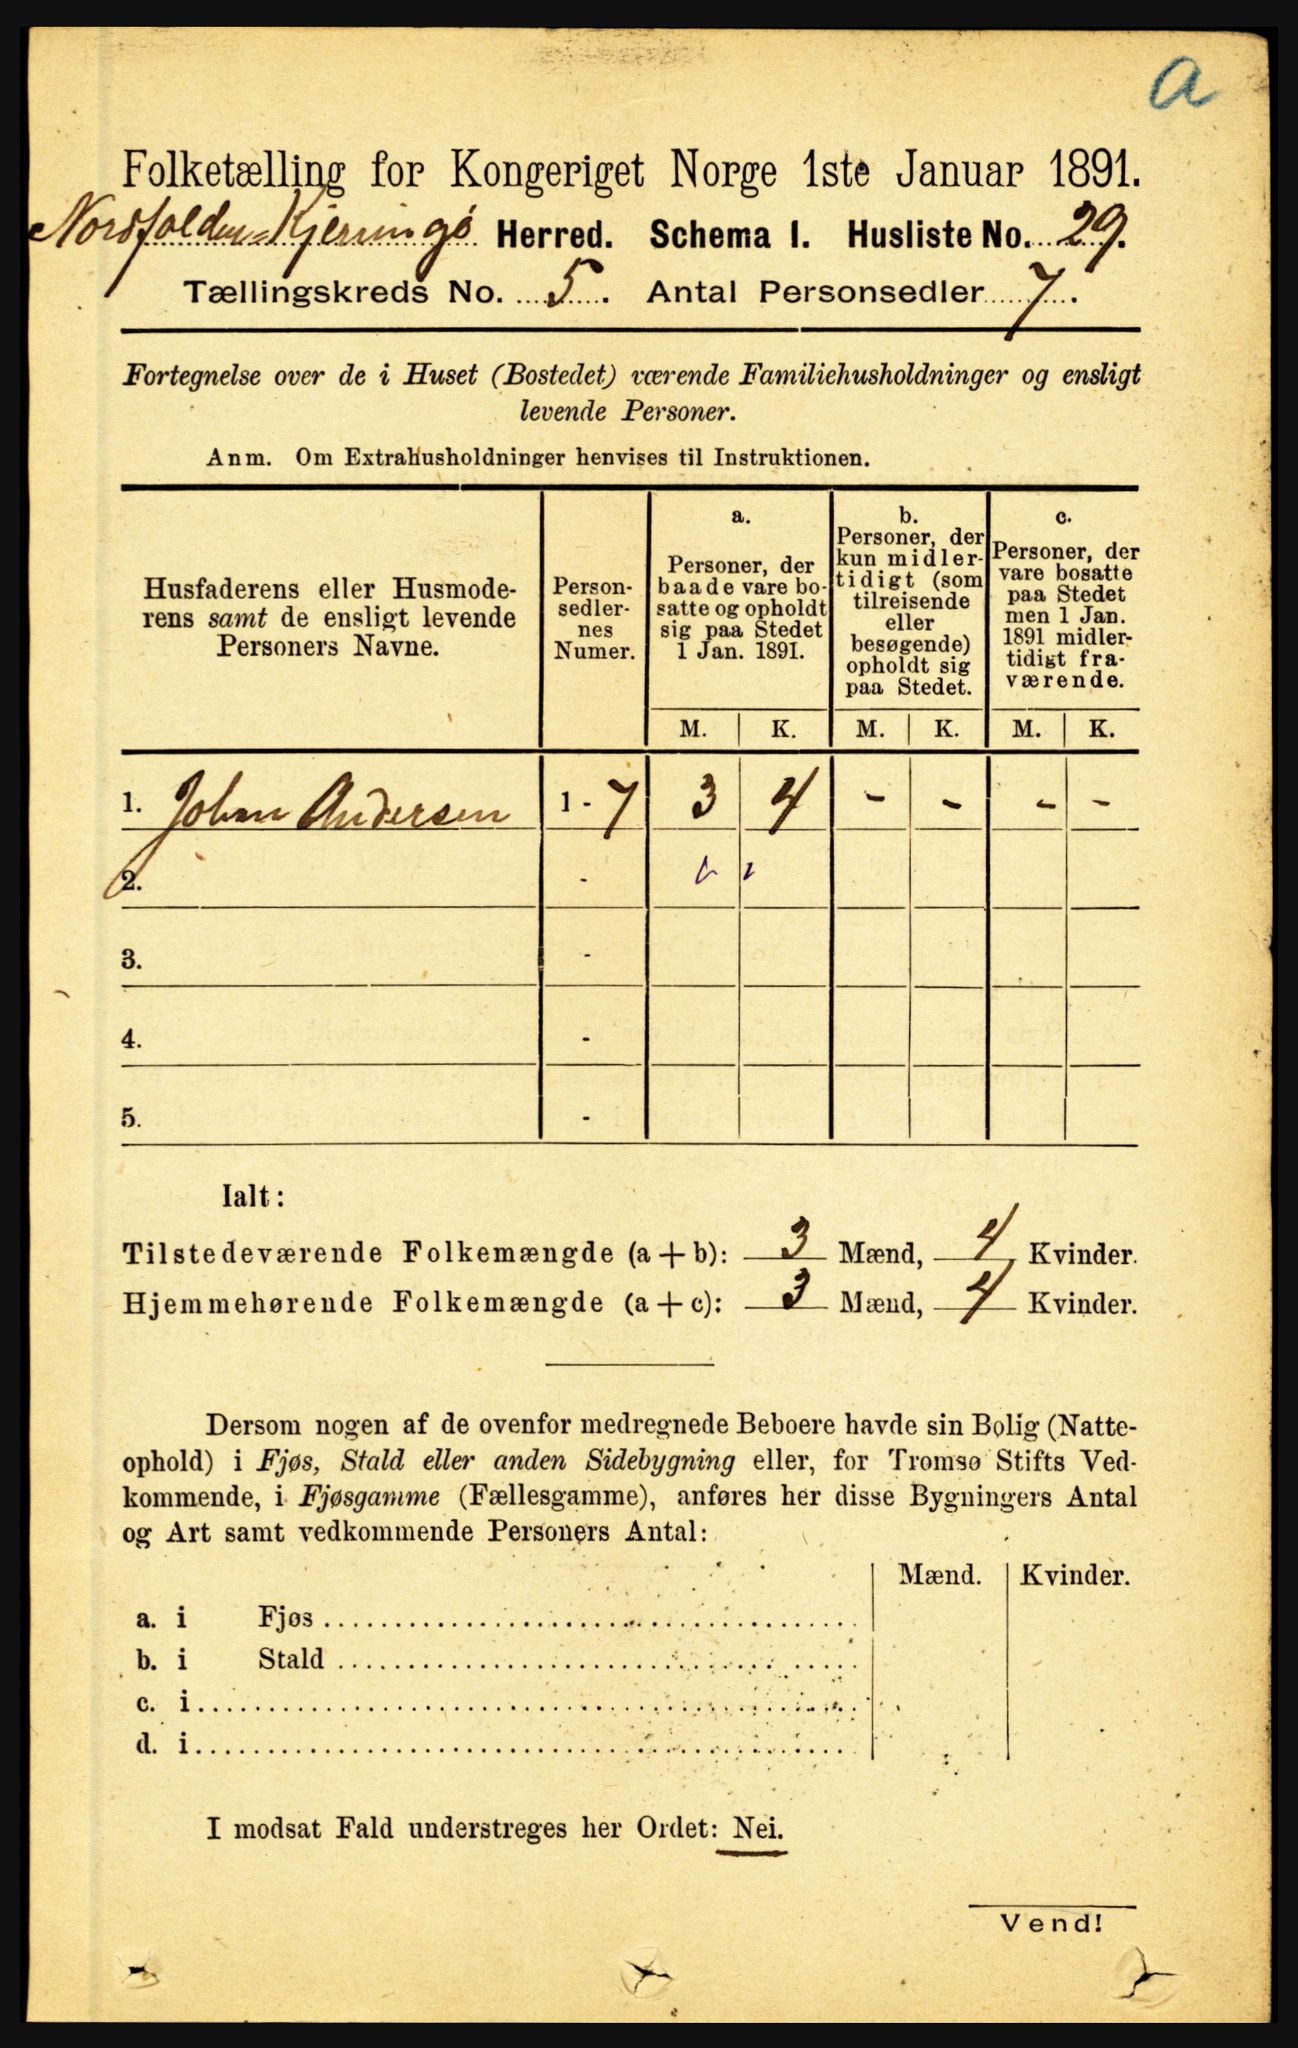 a
Folketælling for Kongeriget Norge 1ste Januar 1891.
Nordfolden-Kjerringø Herred. Schema I. Husliste No. 29.
Tællingskreds No. 5. Antal Personsedler 7.
Fortegnelse over de i Huset (Bostedet) værende Familiehusholdninger og ensligt
levende Personer.
Anm. Om Extrahusholdninger henvises til Instruktionen.
Husfaderens eller Husmode-
rens samt de ensligt levende
Personers Navne.
Person-
sedler-
nes
Numer.
a.
Personer, der
baade vare bo-
satte og opholdt
sig paa Stedet
1 Jan. 1891.
b.
Personer, der
kun midler-
tidigt (som
tilreisende
eller
besøgende)
opholdt sig
paa Stedet.
c.
Personer, der
vare bosatte
paa Stedet
men 1 Jan.
1891 midler-
tidigt fra-
værende.
M. K. M. K. M. K.
1. Johan Andersen 1 - 7 3 4 - - - -
2. -
3. -
4. -
5. -
Ialt:
Tilstedeværende Folkemængde (a + b): 3 Mænd, 4 Kvinder.
Hjemmehørende Folkemængde (a + c): 3 Mænd, 4 Kvinder.
Dersom nogen af de ovenfor medregnede Beboere havde sin Bolig (Natte-
ophold) i Fjøs, Stald eller anden Sidebygning eller, for Tromsø Stifts Ved-
kommende, i Fjøsgamme (Fællesgamme), anføres her disse Bygningers Antal
og Art samt vedkommende Personers Antal:
Mænd. Kvinder.
a. i Fjøs
b. i Stald
c. i
d. i
I modsat Fald understreges her Ordet: Nei.
Vend!